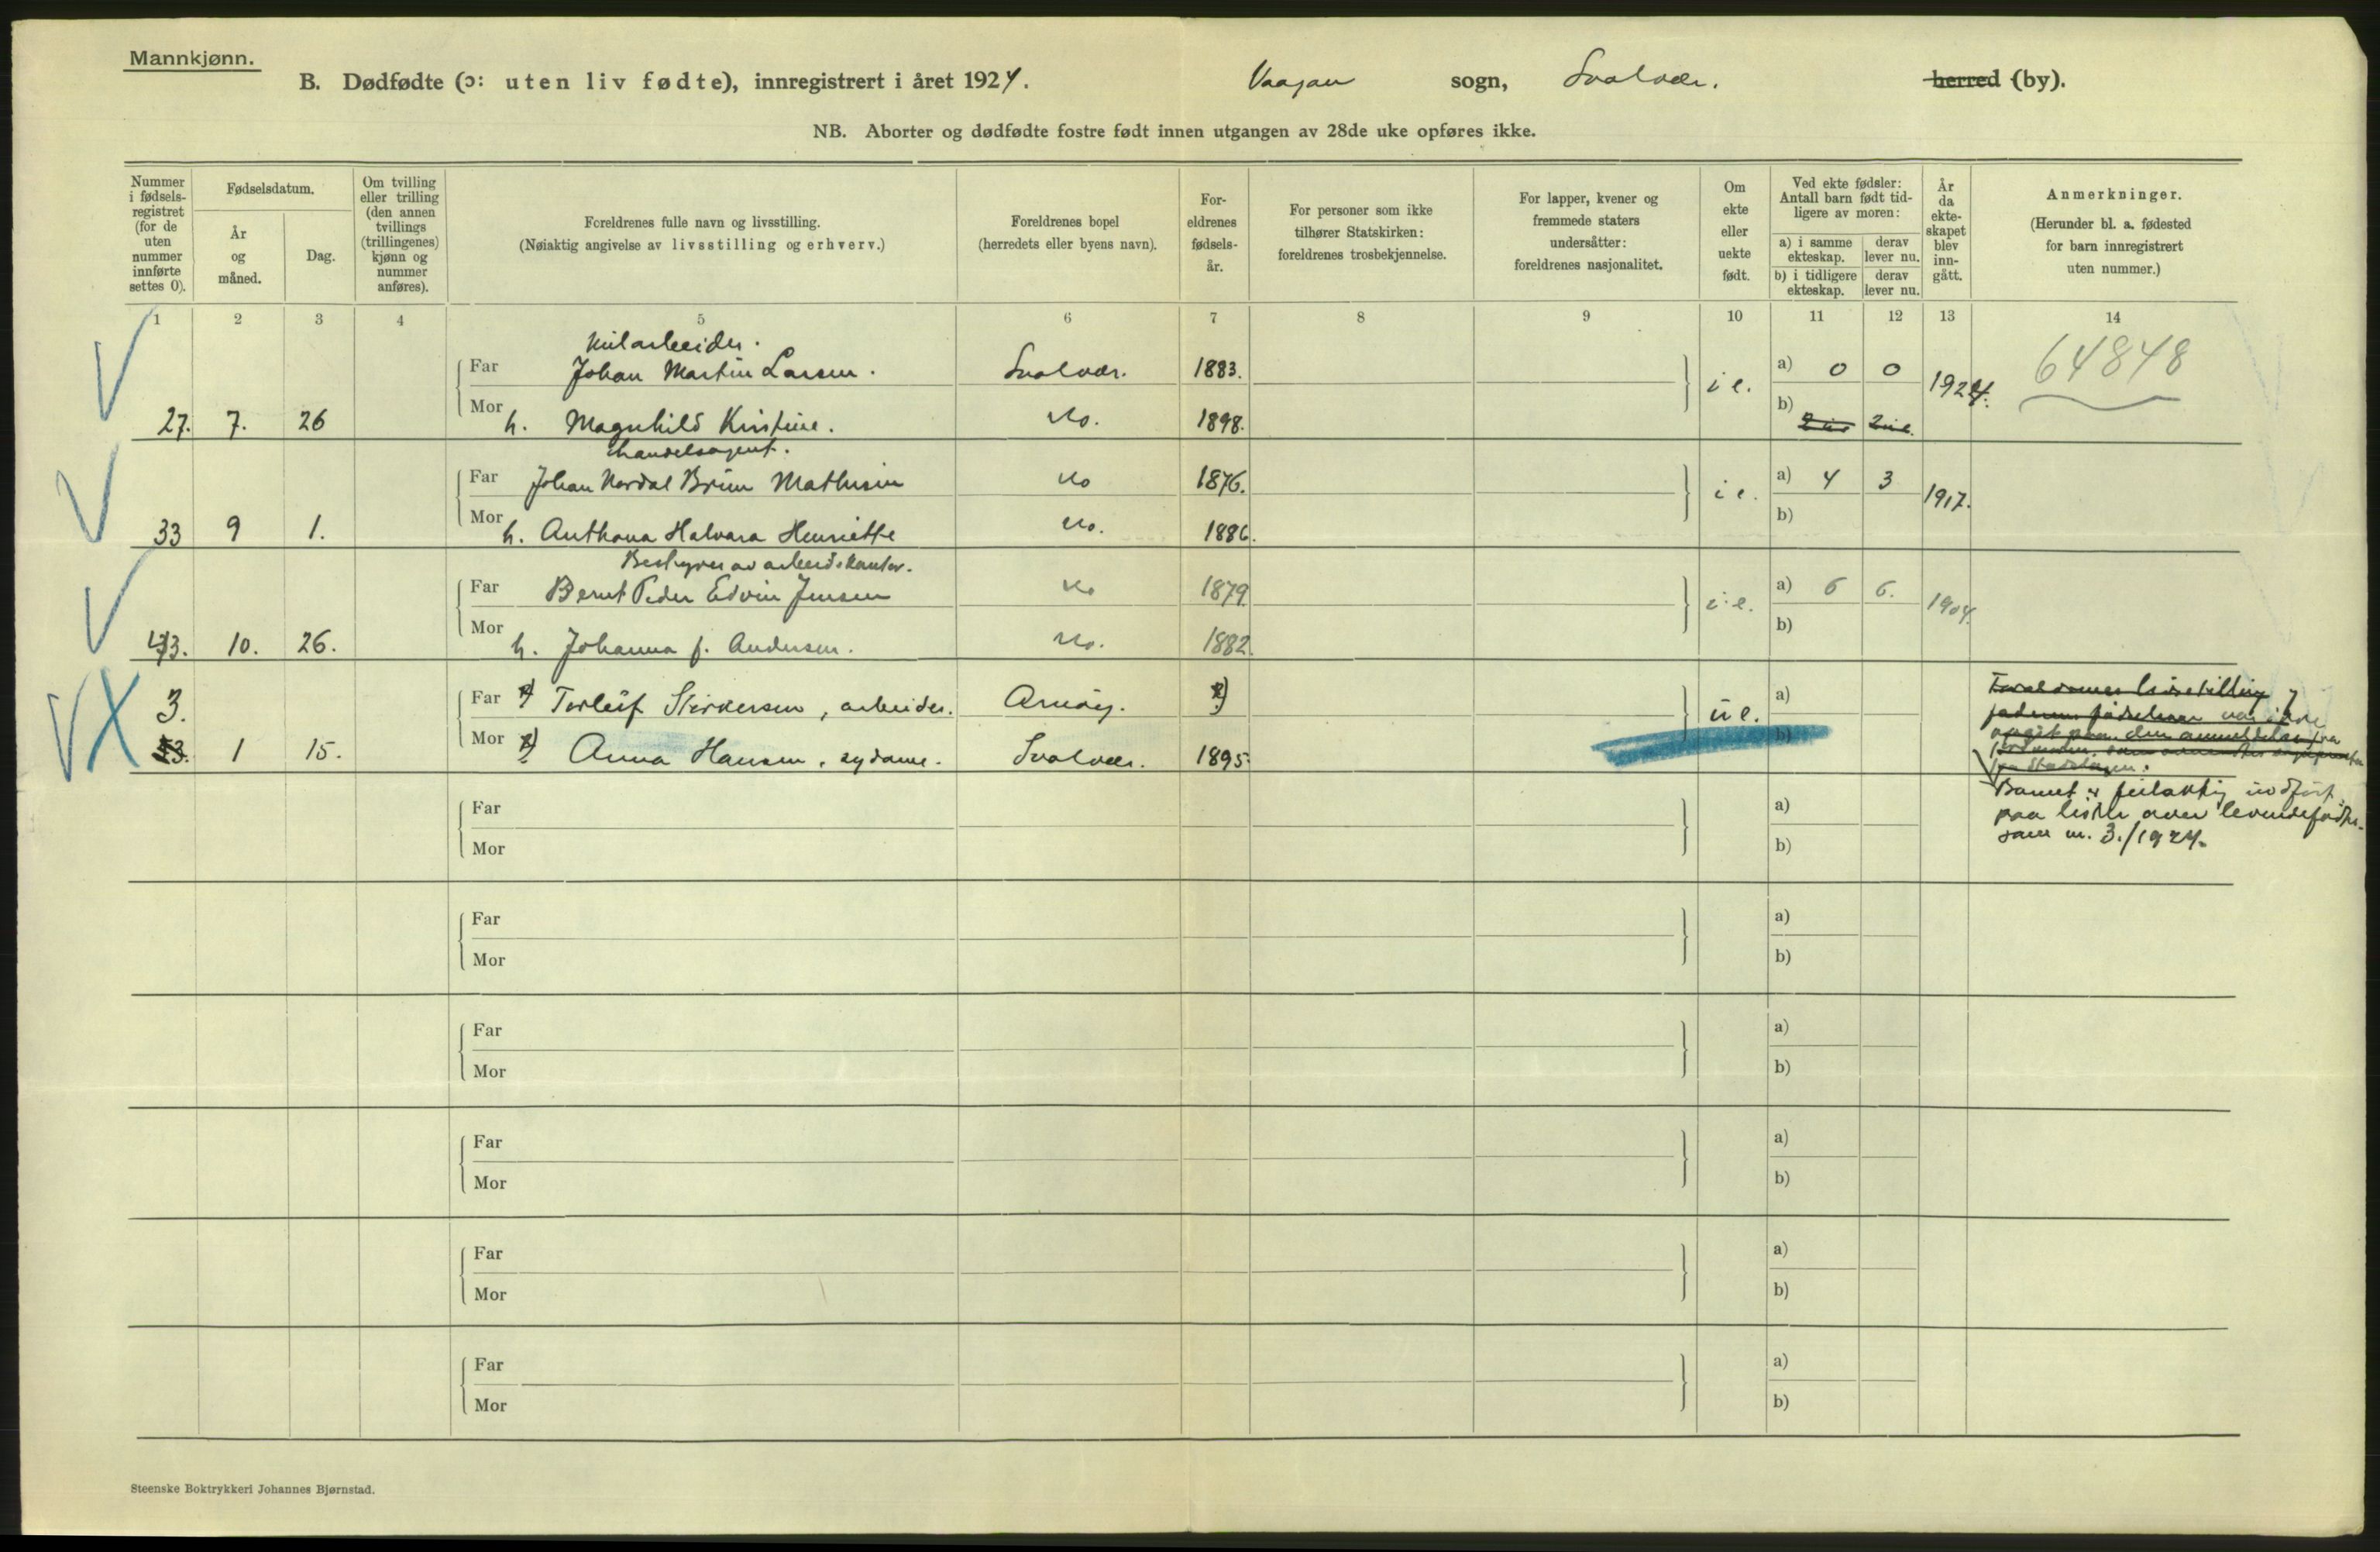 Mannkjønn.
B. Dødfødte (ɔ: uten liv fødte), innregistrert i året 1924. Vaagan sogn, Svolvær. herred (by).
NB. Aborter og dødfødte fostre født innen utgangen av 28de uke opføres ikke.
Nummer i fødsels-registret (for de uten nummer innførte settes 0).
Fødselsdatum.
År og måned.
Dag.
Om tvilling eller trilling (den annen tvillings (trillingenes) kjønn og nummer anføres).
Foreldrenes fulle navn og livsstilling.
(Nøiaktig angivelse av livsstilling og erhverv.)
Foreldrenes bopel
(herredets eller byens navn).
For-eldrenes fødsels-år.
For personer som ikke tilhører Statskirken: foreldrenes trosbekjennelse.
For lapper, kvener og fremmede staters undersåtter: foreldrenes nasjonalitet.
Om ekte eller uekte født.
Ved ekte fødsler: Antall barn født tid-ligere av moren:
a) i samme ekteskap.
derav lever nu.
b) i tidligere ekteskap.
derav lever nu.
År da ekte-skapet blev inn-gått.
Anmerkninger.
(Herunder bl. a. fødested for barn innregistrert uten nummer.)
1 2 3 4 5 6 7 8 9 10 11 12 13 14
Far Johan Martin Larsen. Svolvær. 1883. i e. a) 0 0 1924. 64848
27. 7. 26 Mor h. Magnhild Kristine. do. 1898. b)
Handelsagent.
Far Johan Nordal Brun Mathisen do 1876. i e. a) 4 3 1917.
33 9 1. Mor h. Anthona Halvara Henriette do. 1886. b)
Bestyrer av arbeidskontor.
Far Bernt Peder Edvin Jensen do 1879 i e. a) 6 6. 1904.
43. 10. 26. Mor h. Johanna f. Andersen. do. 1882. b)
3. Far Torleif Sirkersen, arbeider. Arnøy. u e. a)
1 15. Mor Anna Hansen, sydame. Svolvær. 1895. b)
Barnet er feilaktig indført
paa liste over levendefødte
som nr. 3./1924.
Far a)
Mor b)
Far a)
Mor b)
Far a)
Mor b)
Far a)
Mor b)
Far a)
Mor b)
Far a)
Mor b)
Steenske Boktrykkeri Johannes Bjørnstad.